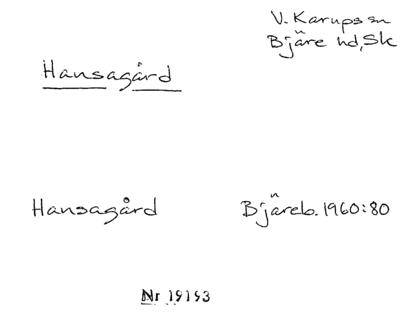 V. Karups sn
Bjäre hd, Sk
Hansagård
Hansagård Bjäreb. 1960:80
Nr 19193